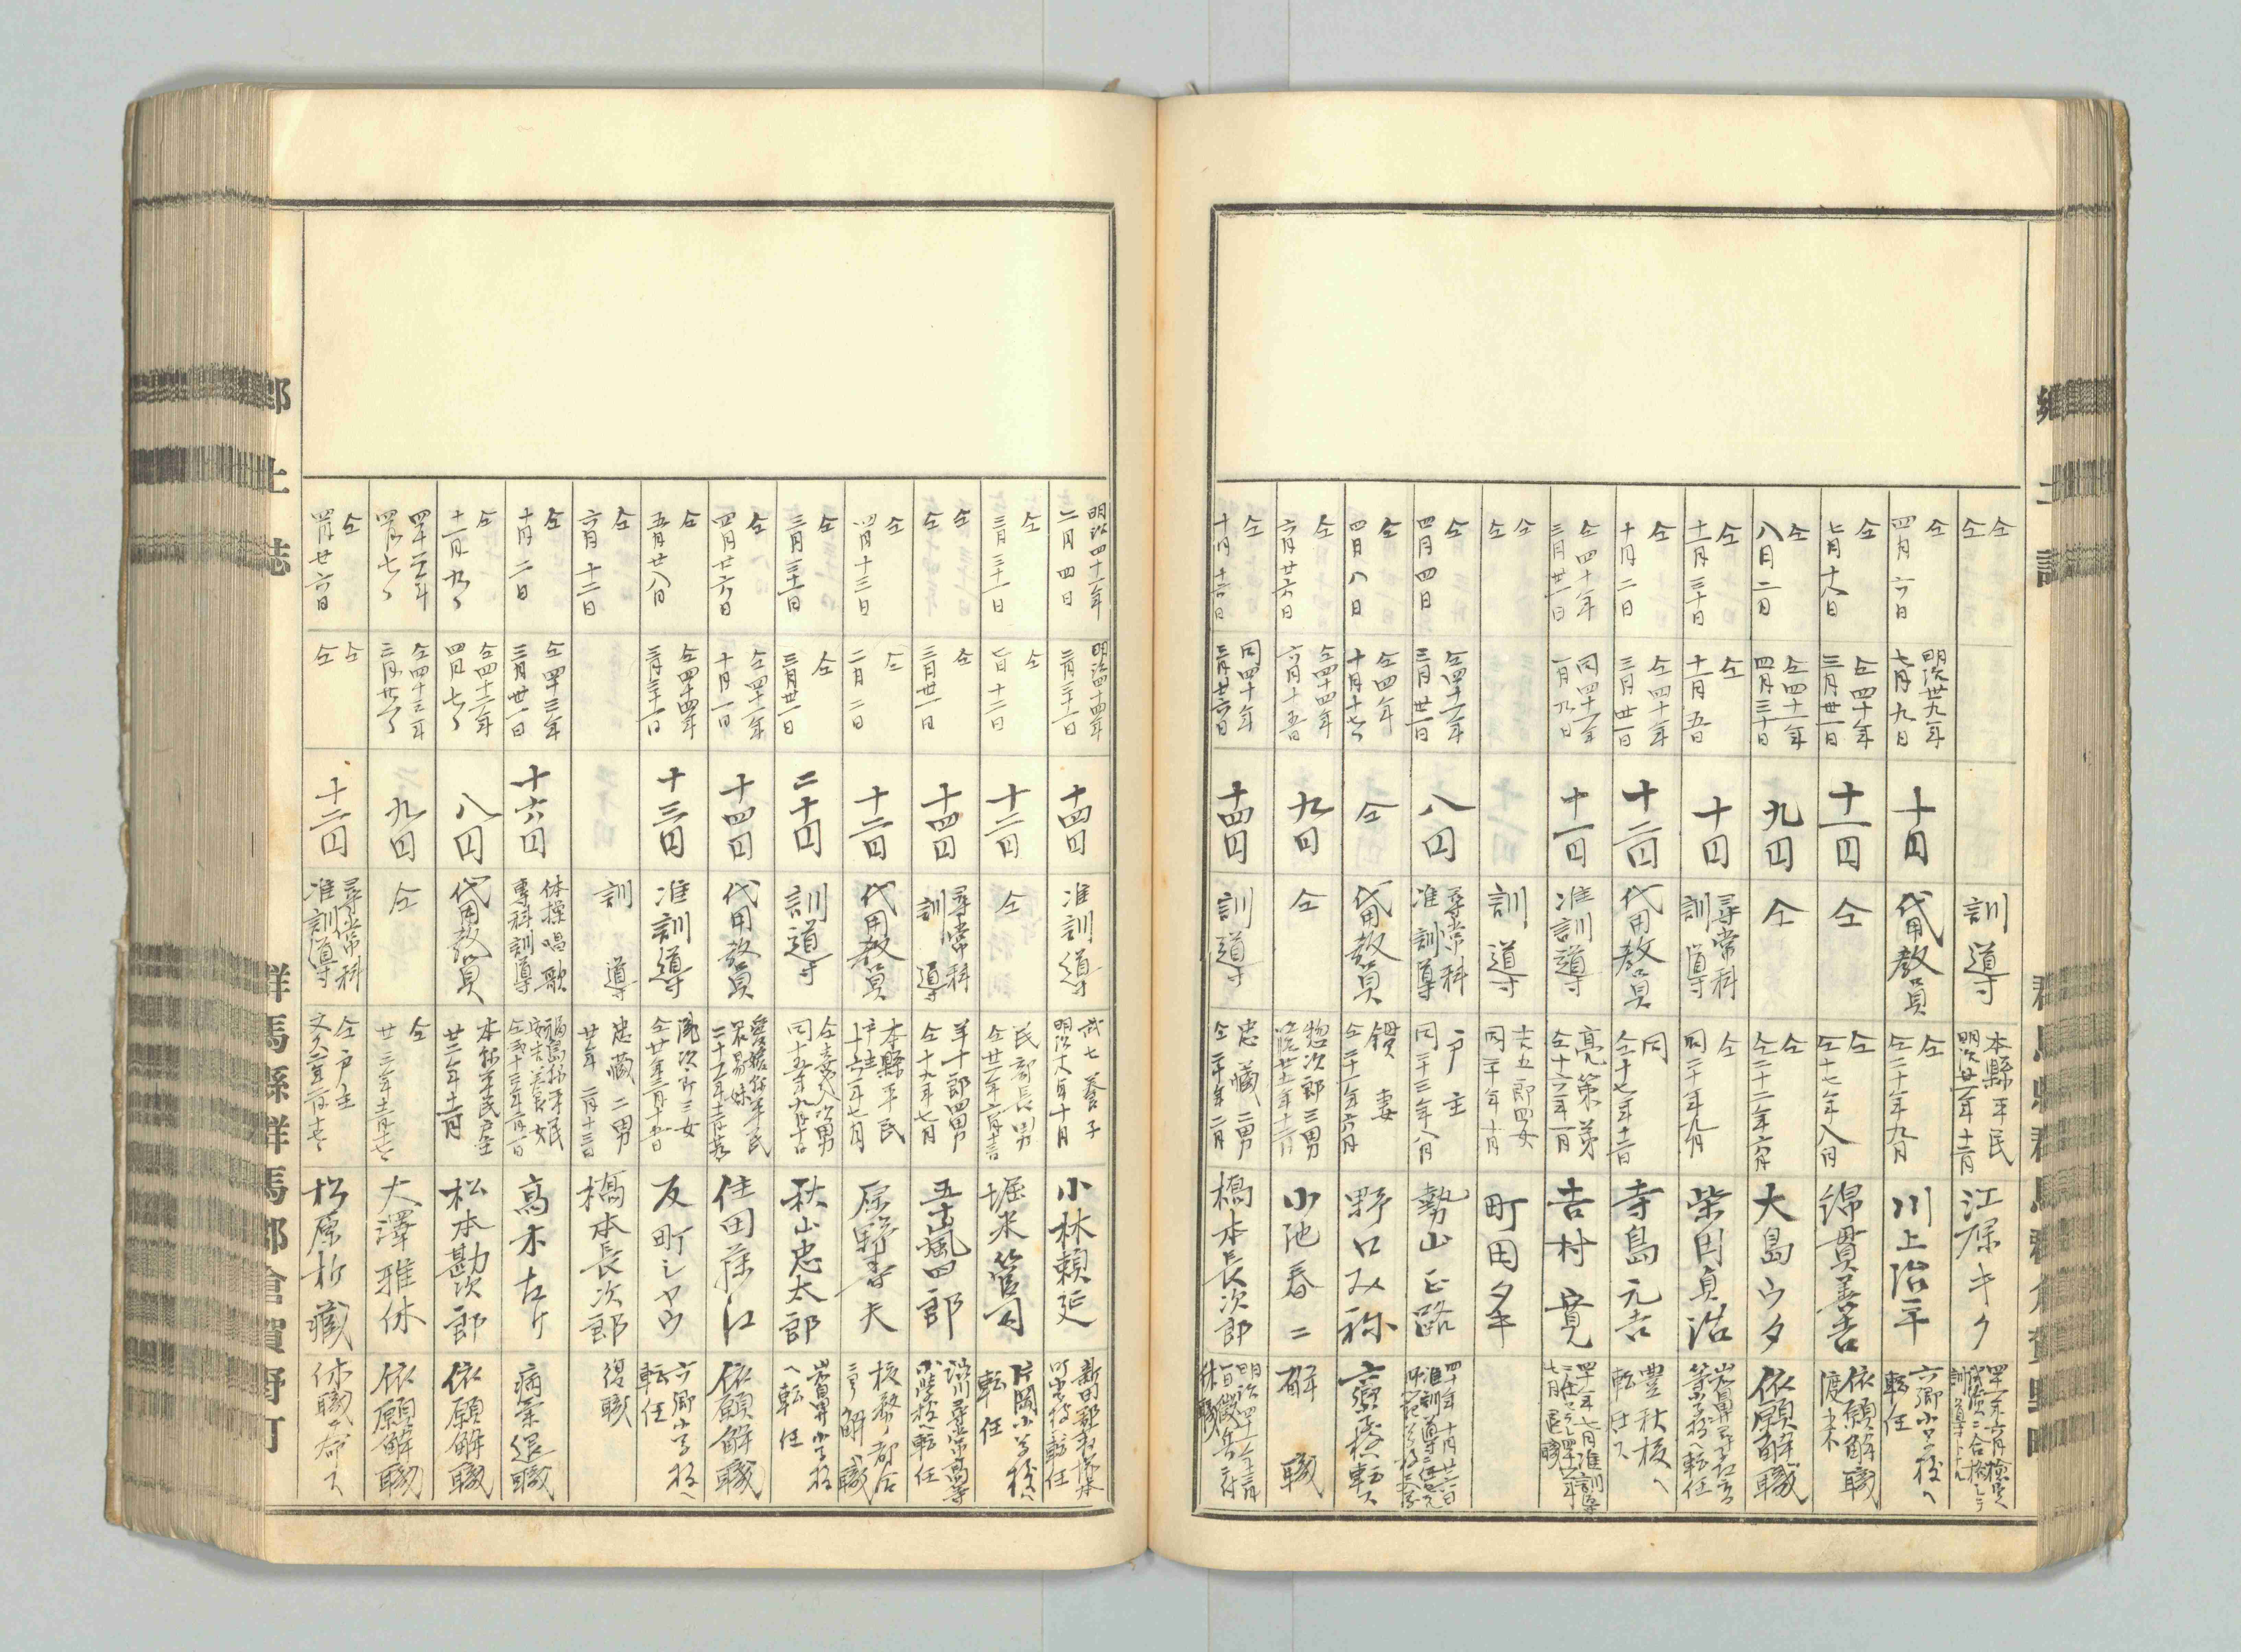 仝
仝
訓導
本縣平民
明治廿一年十二月
江原キク
訓導トナル
仝
四月六日
明治卅九年
七月九日
十円
代用教員
仝
仝二十年九月
川上治平
六郷小学校ヘ
転任
仝
七月十八日
仝四十年
三月卅一日
十一円
仝
仝
仝十七年八月
綿貫善吉
依願解職
渡米
仝
八月二日
仝四十一年
四月三十日
九円
仝
仝
仝二十二年六月
大島ウタ
依願解職
仝
十一月三十日
仝
十二月五日
十円
尋常科
訓導
仝
同二十年九月
柴田貞治
岩鼻尋常高
等小学校ヘ転任
仝
十月二日
仝四十年
三月卅一日
十二円
代用教員
同
仝十七年十二月
寺島元吉
豊秋校ヘ
転任ス
仝四十年
三月廿一日
同四十一年
一月九日
十一円
准訓導
亮策弟
仝十六年一月
吉村寛
仝
仝
訓導
夫五郎四女
同二十年十月
町田タキ
仝
四月四日
仝四十一年
三月卅一日
八円
尋常科
准訓導
戸主
同二十三年八月
勢山正路
仝
四月八日
仝四年
十月十七日
仝
代用教員
鐐妻
仝二十一年六月
野口みね
六郷校ヘ転ス
仝
六月廿六日
仝四十四年
六月十五日
九円
仝
惣次郎三男
小池春二
解職
仝
十月十六日
同四十年
三月廿六日
十四円
訓導
忠藏二男
仝二十年二月
橋本長次郎
休職
明治四十一年
二月四日
明治四十四年
三月三十一日
十四円
准訓導
武七養子
明治十八年十月
小林頼延
仝
三月三十一日
仝
七月十二日
十二円
仝
民部長男
堀米管司
片岡小学校ヘ
転任
仝
仝
仝
三月廿一日
十四円
尋常科
訓導
羊十郎四男
仝十九年七月
五十嵐四郎
渋川尋常高等
小学校ヘ転任
仝
四月十三日
仝
二月二日
十二円
代用教員
本縣平民
戸主
十六年七月
原野壽夫
校務ノ都合
ニヨリ解職
仝
三月三十一日
仝
三月廿一日
二十円
訓導
秋山忠太郎
岩鼻小学校
ヘ転任
仝
四月廿六日
仝四十一年
十月一日
十四円
代用教員
愛媛縣平民
住田藤江
依願解職
仝
五月廿八日
仝四十四年
三月三十一日
十三円
准訓導
風次郎三女
仝廿年三月十五日
反町シヤウ
六郷小学校ヘ
転任
仝
六月十二日
訓導
忠藏二男
廿年二月十三日
橋本長次郎
復職
仝
十月二日
仝四十三年
三月卅一日
十六円
体操唱歌
專科訓導
福島縣平民
高木右ケ
病気退職
仝
十一月九日
仝四十二年
四月七日
八円
代用教員
本縣平民戸主
廿二年十二月
松本勘次郎
依願解職
四十二年
四月七日
仝四十三年
三月廿一日
九円
仝
仝
大澤雅休
依願解職
仝
四月廿六日
仝
仝
十二円
尋常科
准訓導
仝戸主
文久二年二月十七日
松原析藏
休職ヲ命ス
群馬縣群馬郡倉賀野町